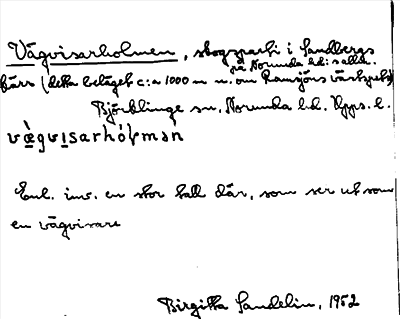 Vågvisarholmen, skogsparti i Sandbergs
på Norunda hd: s allm.
färs (detta beläget c:a 1000 m n. om Ramsjöns västspets)
Björklinge sn, Norunda hd. Upps. l.
Enl. inv. en stor tall där, som ser ut som
en vägvisare
Birgitta Sandelin, 1952